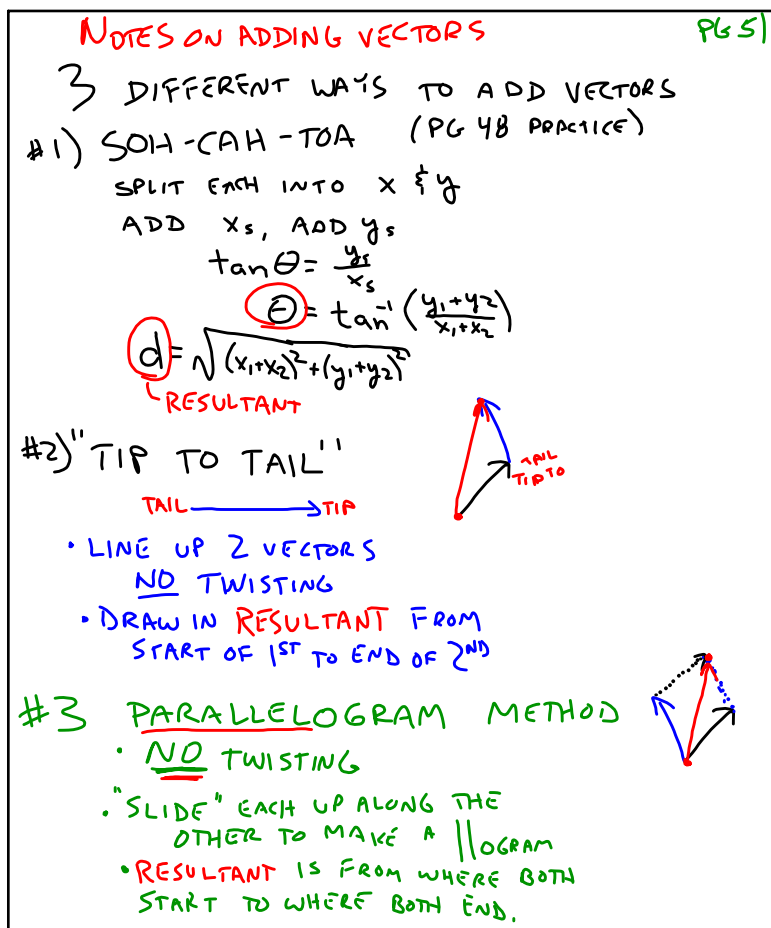 NOTES ON ADDING VECTORS
PG 51
3 DIFFERENT WAYS TO ADD VECTORS
#1) SOH-CAH-TOA (PG 48 PRACTICE)
SPLIT EACH INTO x & y
ADD xs, ADD ys
tan θ = ys/xs
θ = tan⁻¹ (y₁+y₂/x₁+x₂)
d = √(x₁+x₂)² + (y₁+y₂)²
RESULTANT
#2) "TIP TO TAIL"
TAIL
TIP TO
TAIL TIP
• LINE UP 2 VECTORS
NO TWISTING
• DRAW IN RESULTANT FROM
START OF 1ST TO END OF 2ND
#3 PARALLELOGRAM METHOD
• NO TWISTING
• "SLIDE" EACH UP ALONG THE
OTHER TO MAKE A ||OGRAM
• RESULTANT IS FROM WHERE BOTH
START TO WHERE BOTH END.